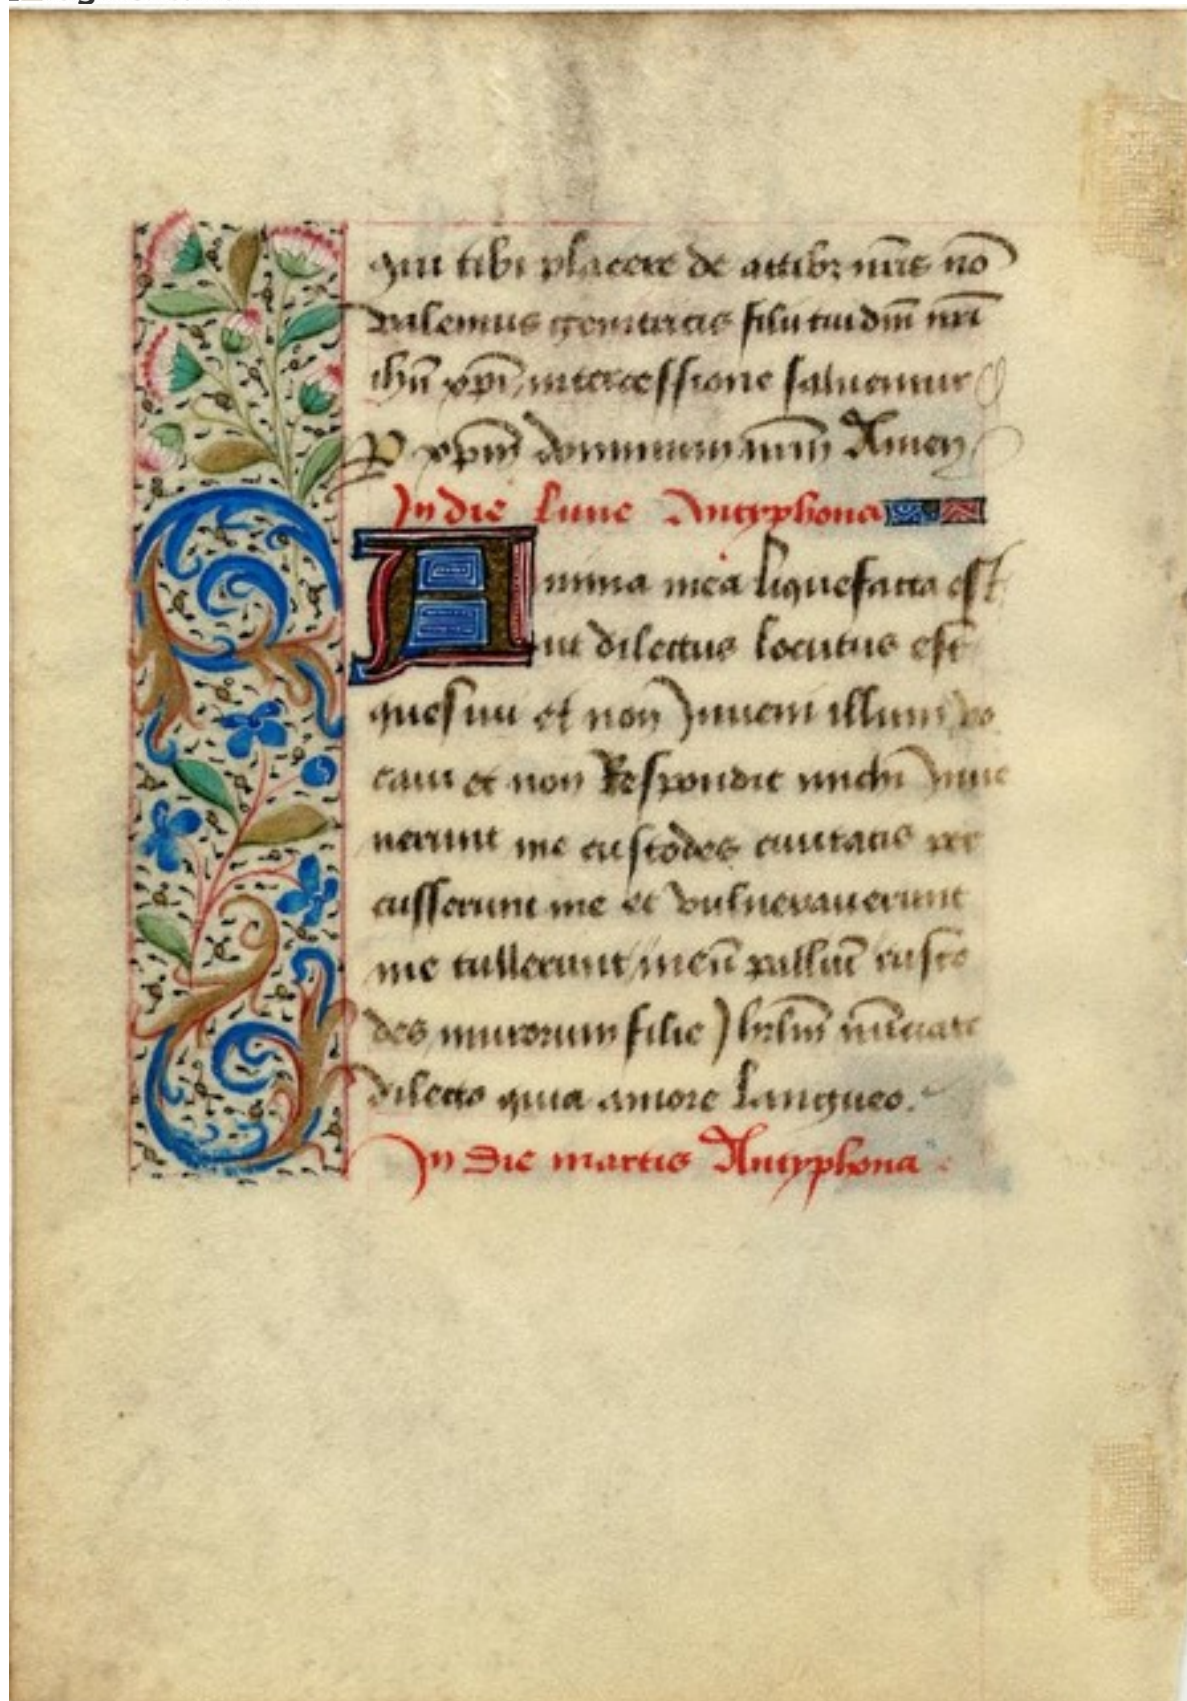 qui tibi placere de actibꝫ nr̄is nō
valemus genitricis filii tui dn̄i nr̄i
ihū xp̄i intercessione saluemur
P xp̄m dominum nr̄m Amen
In die lune Antyphona
Anima mea liquefacta est
ut dilectus locutus est
quesiui et non Inueni illum vo
caui et non Respondit michi Inue
nerunt me custodes ciuitatis per
cusserunt me et vulnerauerunt
me tullerunt meū palliū custo
des murorum filie Ihrlm̄ nūciate
dilecto quia amore langueo.
In die martis Antyphona